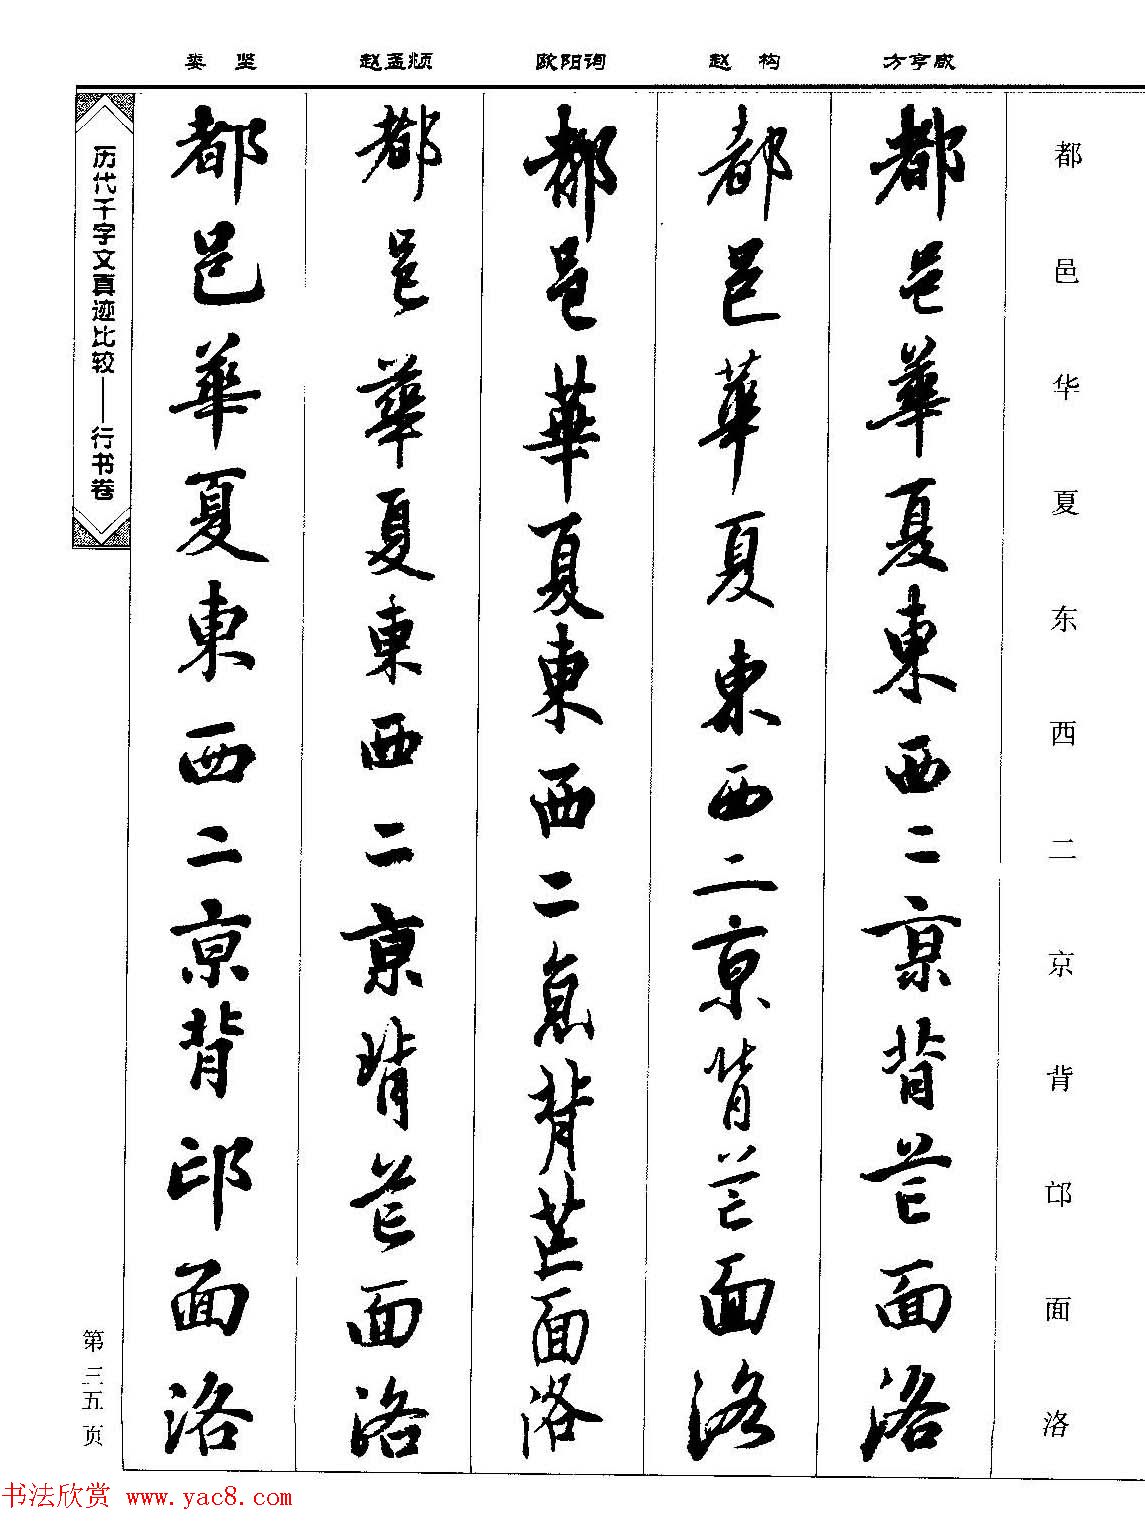 娄坚 赵孟頫 欧阳询 赵构 方亨咸
都邑华夏东西二京背邙面洛
都邑華夏東西二京背芒面洛
都邑華夏東西二京背芒面洛
都邑華夏東西二京背芒面洛
都邑華夏東西二京背芒面洛
都邑華夏東西二京背邙面洛
历代千字文真迹比较——行书卷
第三五页
书法欣赏 www.yac8.com